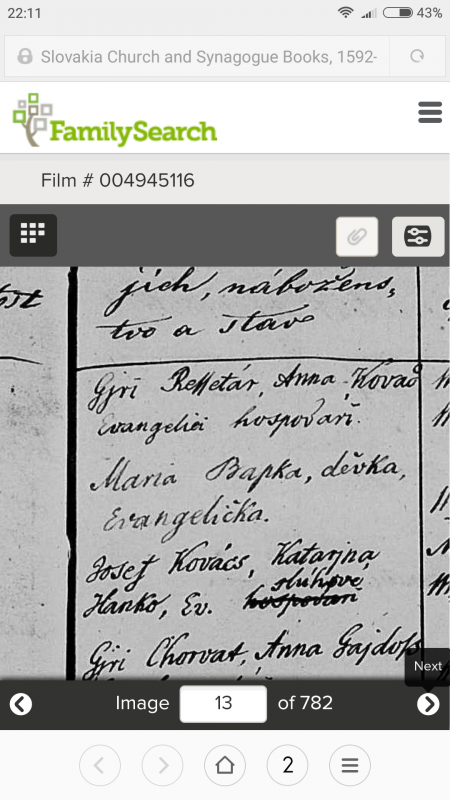 22:11
43%
Slovakia Church and Synagogue Books, 1592-
FamilySearch
Film # 004945116
jich, nábožens,
tvo a stav
Gjrí Reſſetár, Anna Kovač
Evangelici hospodaři.
Maria Bapka, děvka,
Evangelička.
Josef Kovács, Katarjna
slúhové
Hanko, Ev. hospodari
Gjri Chorvat, Anna Gajdoſs
Next
Image 13 of 782
2